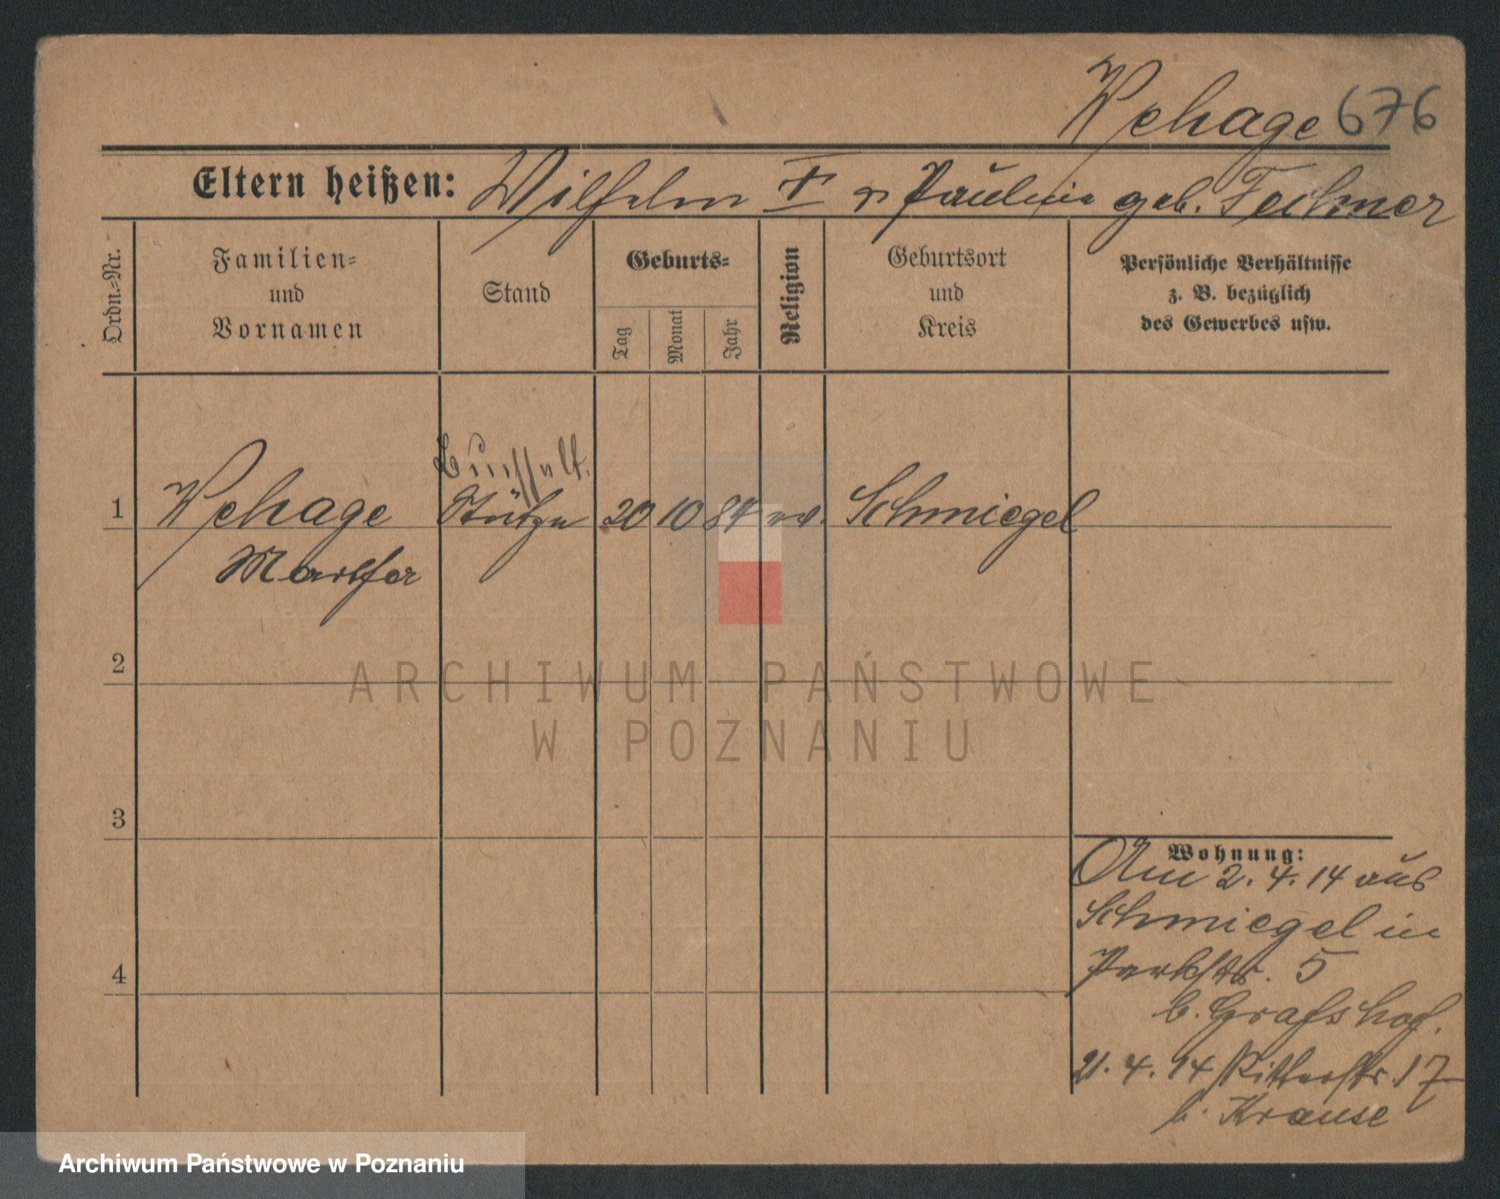 Wehage 676
Eltern heißen: Wilhelm † u Pauline geb. Fechner
Ordn.-Nr.
Familien-
und
Vornamen
Stand
Geburts-
Tag
Monat
Jahr
Religion
Geburtsort
und
Kreis
Persönliche Verhältnisse
z. B. bezüglich
des Gewerbes usw.
Buchhalt.
1 Wehage Stütze 20 10 84 ev. Schmiegel
Martha
2
ARCHIWUM PAŃSTWOWE
W POZNANIU
3
Wohnung:
Am 2. 4. 14 aus
Schmiegel in
4
Parkstr. 5
b. Grafshof.
21. 4. 14 Ritterstr. 17
b. Krause
Archiwum Państwowe w Poznaniu